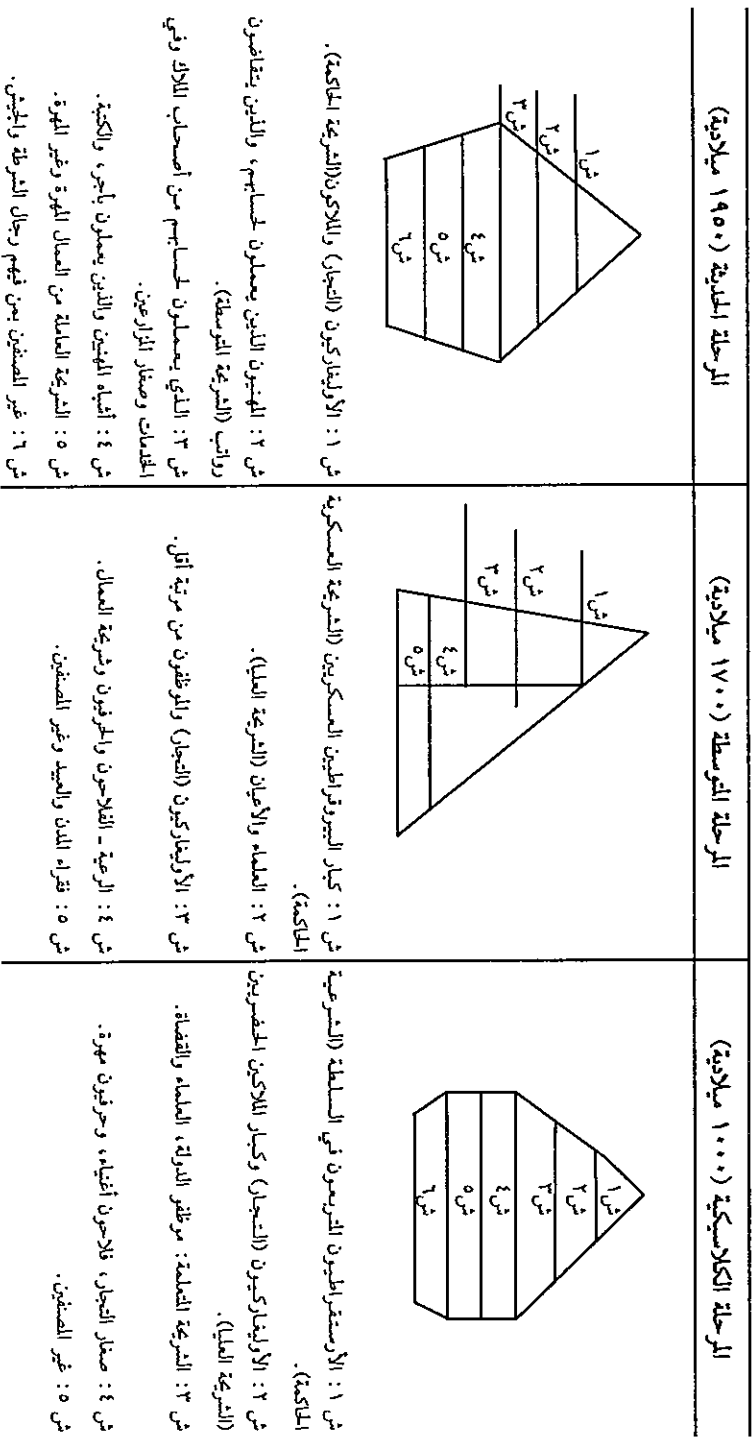 المرحلة الكلاسيكية (١٠٠٠ ميلادية)
ش١
ش٢
ش٣
ش٤
ش٥
ش٦
ش ١: الأرستقراطيون المتربعون في السلطة (الشرعية
الحاكمة).
ش ٢: الأوليغاركيون (التجار) وكبار الملاكين الحضريين
(الشريحة العليا).
ش ٣: الشريحة المتعلمة: موظفو الدولة، العلماء والقضاة.
ش ٤: صغار التجار، فلاحون أغنياء، وحرفيون مهرة.
ش ٥: غير المصنفين.
المرحلة المتوسطة (١٧٠٠ ميلادية)
ش١
ش٢
ش٣
ش٤
ش٥
ش ١: كبار البيروقراطيين العسكريين (الشريحة العسكرية
الحاكمة).
ش ٢: العلماء والأعيان (الشريحة العليا).
ش ٣: الأوليغاركيون (التجار) والموظفون من مرتبة أقل.
ش ٤: الرعية - الفلاحون والحرفيون وشريحة العمال.
ش ٥: فقراء المدن والعبيد وغير المصنفين.
المرحلة الحديثة (١٩٥٠ ميلادية)
ش١
ش٢
ش٣
ش٤
ش٥
ش٦
ش ١: الأوليغاركيون (التجار) والملاكون(الشريحة الحاكمة).
ش ٢: المهنيون الذين يعملون لحسابهم، والذين يتقاضون
رواتب (الشريحة المتوسطة).
ش ٣: الذي يعملون لحسابهم من أصحاب الملاك وفي
الخدمات وصغار المزارعين.
ش ٤: أشباه المهنيين والذين يعملون بأجر، والكتبة.
ش ٥: الشريحة العاملة من العمال المهرة وغير المهرة.
ش ٦: غير المصنفين بمن فيهم رجال الشرطة والجيش.